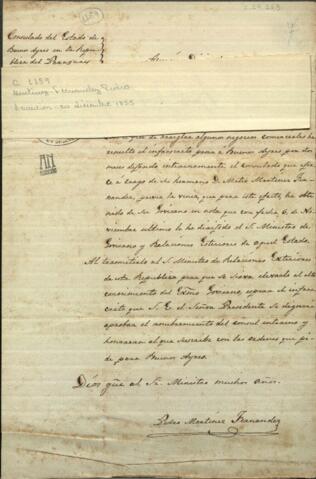 Consulado del Estado de
Buenos Ayres en la Repú-
blica del Paraguay
C. 1159
Martinez Fernandez Pedro
Asuncion 20 diciembre 1855
arreglar algunos negocios comerciales he
resuelto el infrascrito pasar á Buenos Ayres por dos
meses dejando interinamente el consulado que ejer-
ce á cargo de su hermano D. Mateo Martinez Fer-
nandez, previa la venia que para este efecto, ha obte-
nido de su Gobierno en nota que con fecha 6 de No-
viembre ultimo le ha dirijido el S. Ministro de
Gobierno y Relaciones Esteriores de aquel Estado.
Al trasmitirlo al S. Ministro de Relaciones Exteriores
de esta Republica para que se sirva elevarlo al
conocimiento del Exmo. Gobierno espera el infras-
crito que S. E. el Señor Presidente se dignará
aprobar el nombramiento del consul interino y
honrará al que suscribe con las ordenes que pi-
de para Buenos Ayres.
Dios gũe al Sr. Ministro muchos años.
Pedro Martinez Fernandez